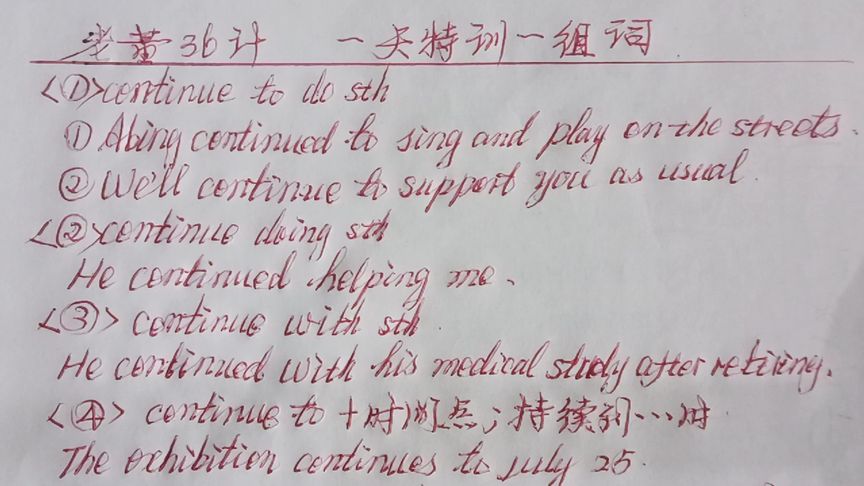 老黄36计 一天特训一组词
<①>continue to do sth
① Abing continued to sing and play on the streets.
② We'll continue to support you as usual.
<②>continue doing sth
He continued helping me.
<③> continue with sth.
He continued with his medical study after retiring.
<④> continue to +时间点;持续到…时
The exhibition continues to July 25.